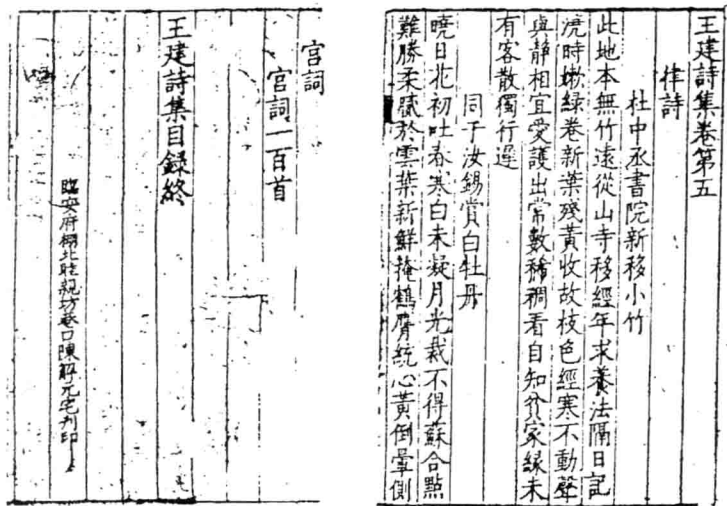 王建詩集卷第五
律詩
杜中丞書院新移小竹
此地本無竹遠從山寺移經年求養法隔日記
澆時嫩綠卷新葉殘黃收故枝色經寒不動聲
與靜相宜愛護出常數稀稠看自知貧家緣未
有客散獨行遲
同于汝錫賞白牡丹
曉日花初吐春寒白未凝月光裁不得蘇合點
難勝柔膩於雲葉新鮮掩鶴膺統心黃倒暈側
宮詞
宮詞一百首
王建詩集目録終
臨安府棚北睦親坊巷口陳解元宅刊印